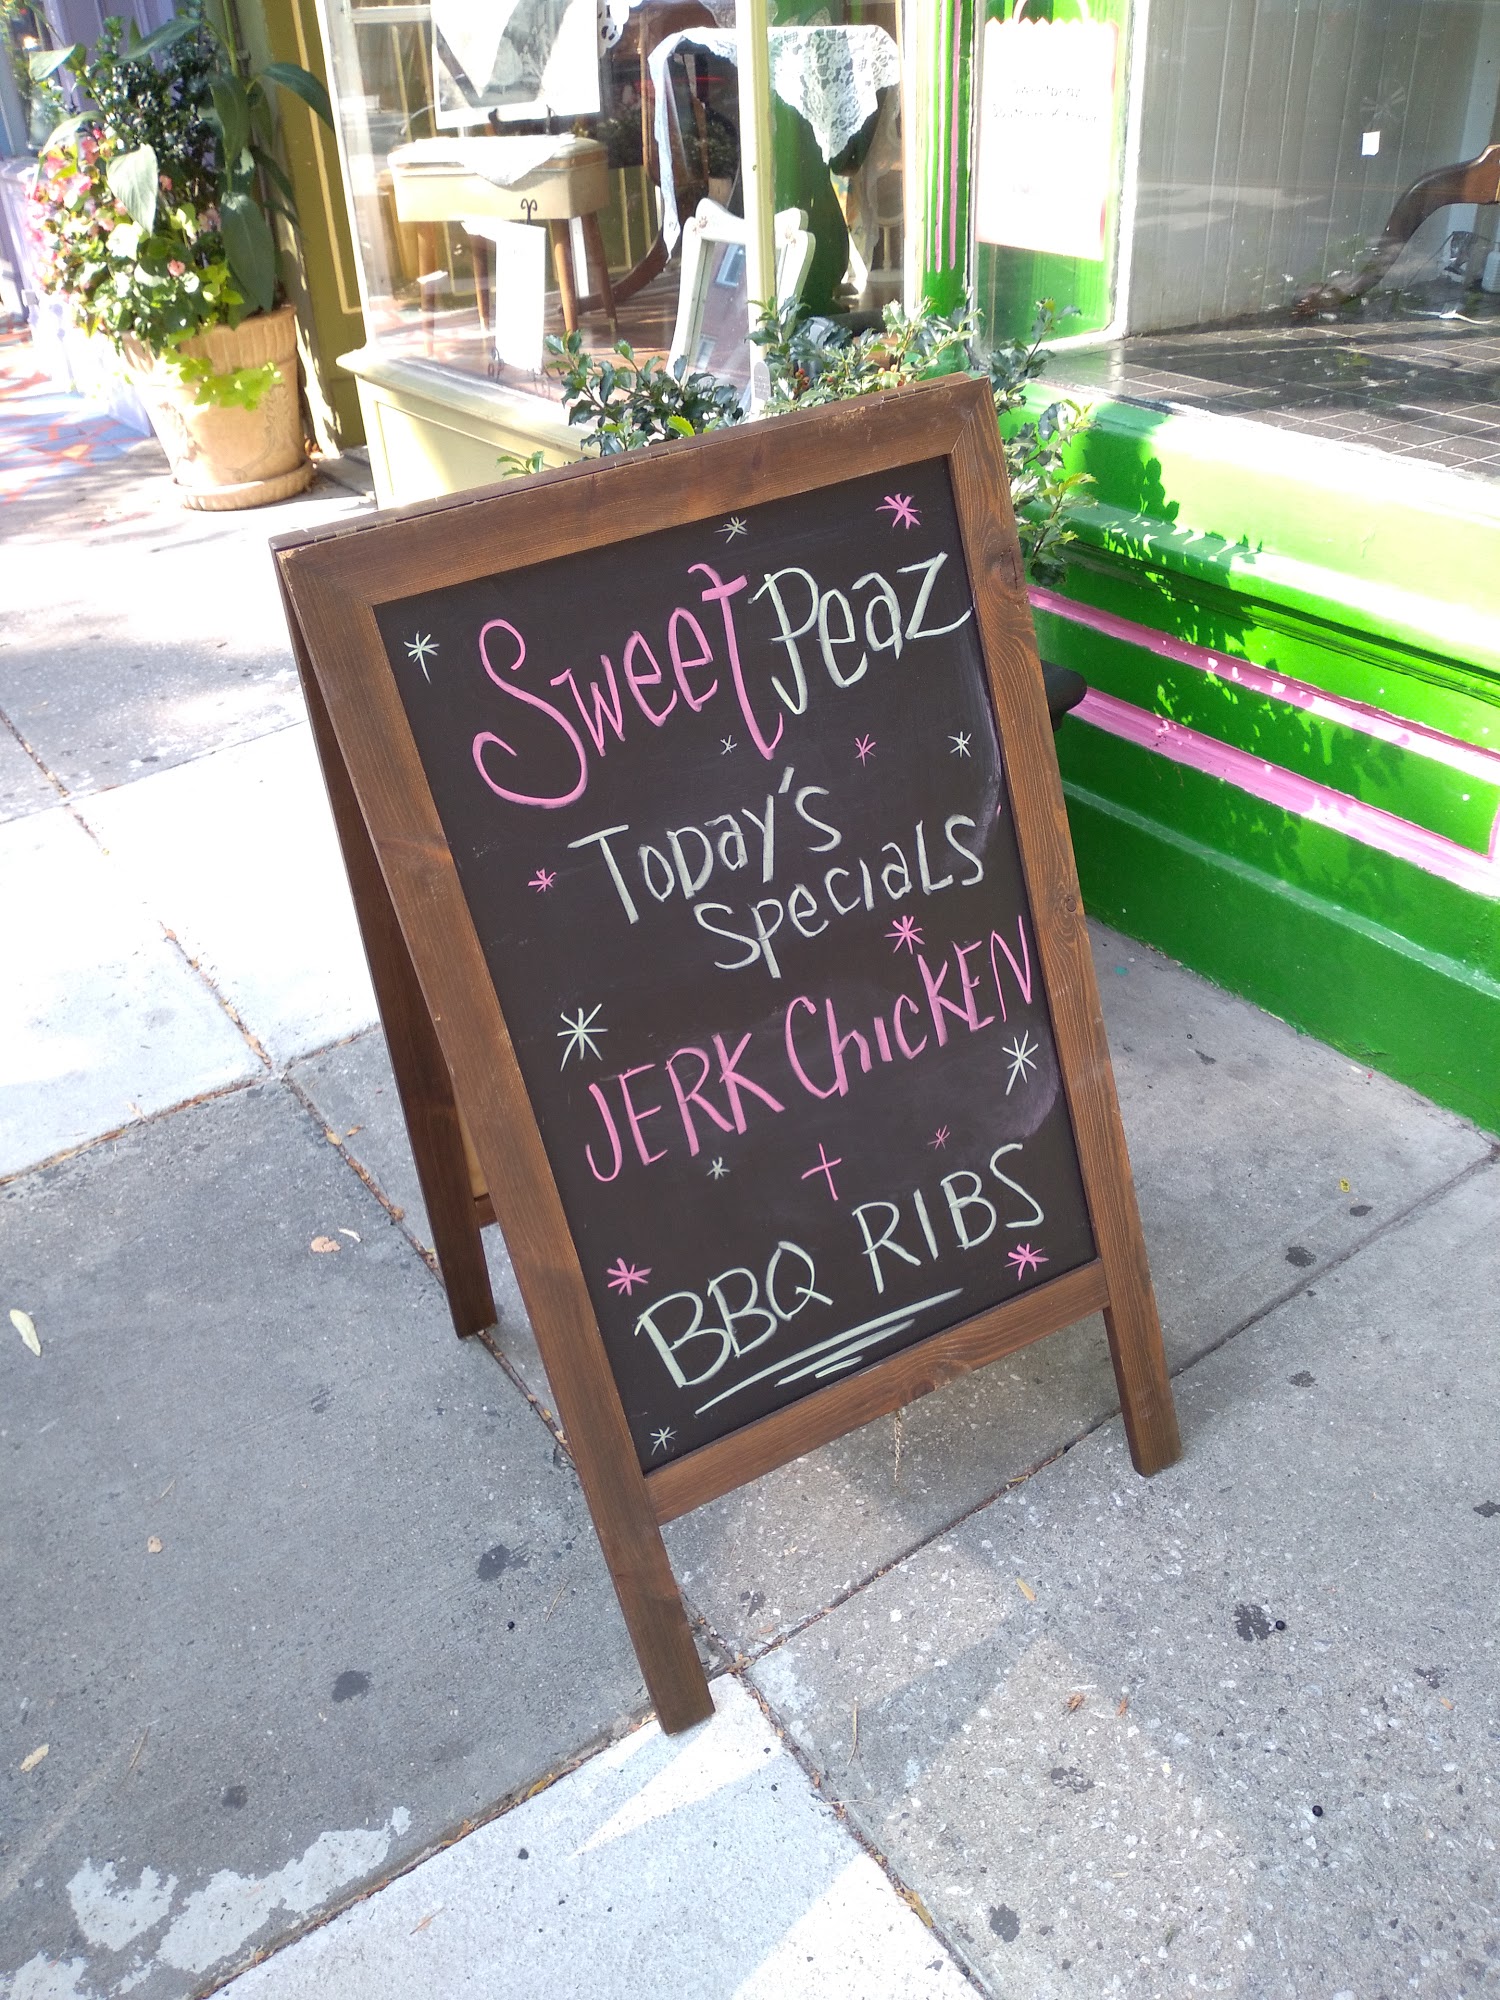 Sweet Peaz
Today's
Specials
JERK ChicKEN
+
BBQ RIBS